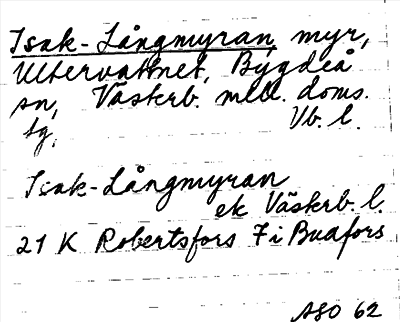 Isak-Långmyran, myr,
Ultervattnet, Bygdeå
sn, Västerb. mell. doms.
tg. Vb. l.
Isak-Långmyran
ek Västerb. l.
21 K Robertsfors 7 i Buafors
ASO 62